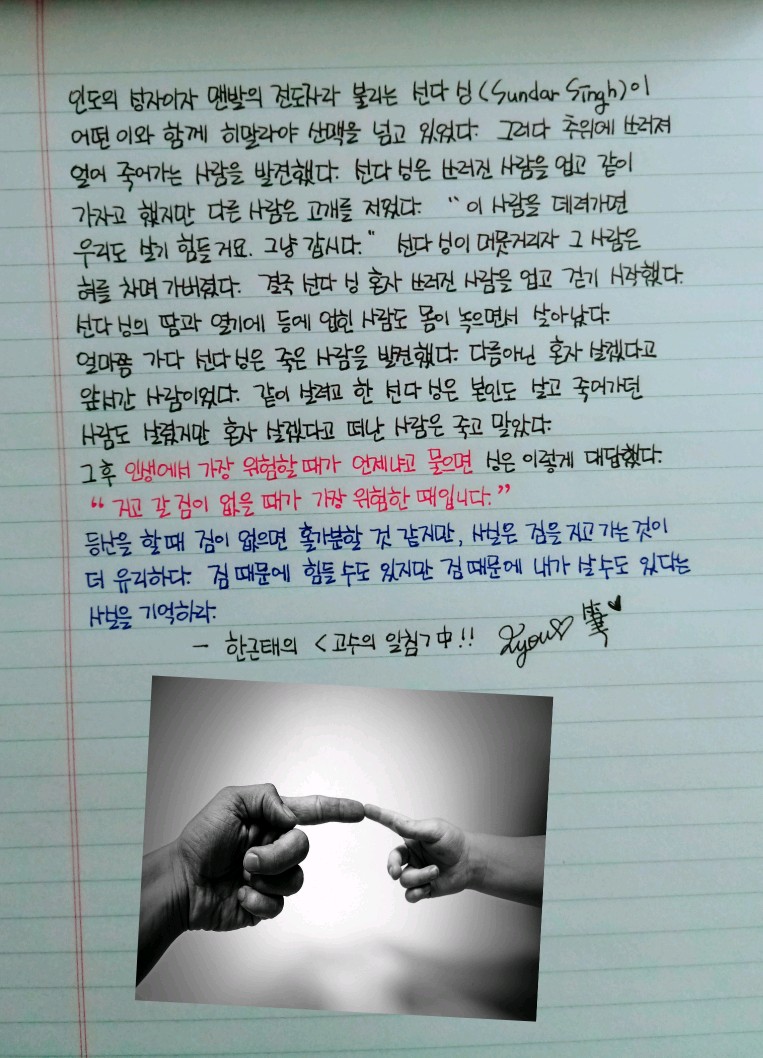 인도의 성자이자 맨발의 전도자라 불리는 선다 싱(Sundar Singh)이
어떤 이와 함께 히말라야 산맥을 넘고 있었다. 그러다 추위에 쓰러져
얼어 죽어가는 사람을 발견했다. 선다 싱은 쓰러진 사람을 업고 같이
가자고 했지만 다른 사람은 고개를 저었다. "이 사람을 데려가면
우리도 살기 힘들거요. 그냥 갑시다." 선다 싱이 머뭇거리자 그 사람은
혀를 차며 가버렸다. 결국 선다 싱 혼자 쓰러진 사람을 업고 걷기 시작했다.
선다 싱의 땀과 열기에 등에 업힌 사람도 몸이 녹으면서 살아났다.
얼마쯤 가다 선다 싱은 죽은 사람을 발견했다. 다름아닌 혼자 살겠다고
앞서간 사람이었다. 같이 살려고 한 선다 싱은 본인도 살고 죽어가던
사람도 살렸지만 혼자 살겠다고 떠난 사람은 죽고 말았다.
그후 인생에서 가장 위험할 때가 언제냐고 물으면 싱은 이렇게 대답했다.
"지고 갈 짐이 없을 때가 가장 위험한 때입니다."
등산을 할 때 짐이 없으면 홀가분할 것 같지만, 사실은 짐을 지고 가는 것이
더 유리하다. 짐 때문에 힘들 수도 있지만 짐 때문에 내가 살 수도 있다는
사실을 기억하라.
- 한근태의 <고수의 일침> 中!!